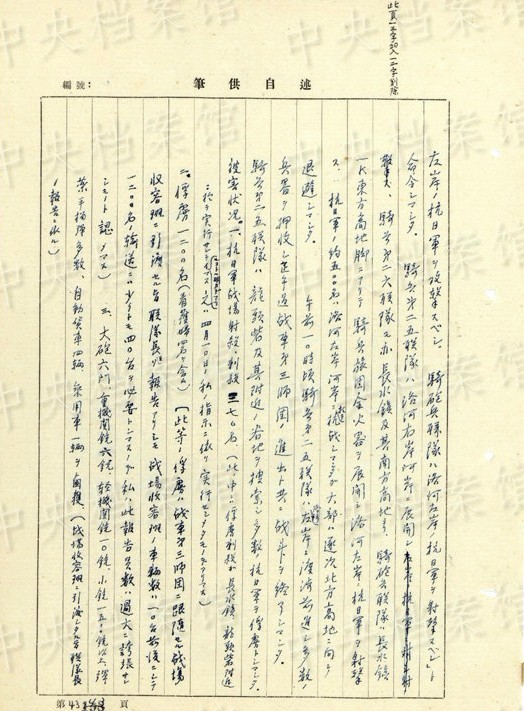 此頁一五字加入一二字刪除
編號：
筆供自述
左岸ノ抗日軍ヲ攻撃スベシ。騎砲兵聯隊ハ洛河左岸ノ抗日軍ヲ射撃スベシト
命令シマシタ。騎兵第二五聯隊ハ洛河右岸河岸ニ展開シ
騎兵第二六聯隊モ亦長水鎮及其南方高地ヨリ騎砲兵聯隊ハ長水鎮
東方高地脚ニアリテ騎兵旅団全火器ヲ展開シ洛河左岸ノ抗日軍ヲ射撃
ス。抗日軍ノ約五〇〇名ハ洛河左岸河岸ニ抗戦シマシタガ大部ハ逐次北方高地ニ向ヒ
退避シマシタ。午前一〇時頃騎兵第二五聯隊左岸ニ渡渉前進シ多数ノ
兵器ヲ押収シ正午過戦車第三師団ノ進出ト共ニ戦斗ヲ終リマシタ。
騎兵第二五聯隊ハ龍頭砦及其附近ノ各地ヲ捜索シ多数抗日軍ヲ俘虜トシマシタ。
被害状況 一、抗日軍戦場射殺、刺殺三七〇名（此中ニ俘虜刺殺ガ長水鎮、龍頭砦附近
ニ於テ実行四月一〇日ノ私ノ指示ニ依リ実行セシメタモノデアリマス）
二、俘虜一二〇〇名（負傷者四〇名ヲ含ム）（此等ノ俘虜ハ戦車第三師団ニ跟随セル戦場
収容班ニ引渡セル旨聯隊長ガ報告アリシモ戦場収容班ノ車輛数ハ一〇台前後ニシテ
一二〇〇名ノ輸送ニハ少クトモ四〇台ヲ必要トシマスノデ私ハ此報告員数ハ過大ニ誇張セ
シモノト認メマス） 三、大砲六門、重機関銃六銃、軽機関銃一〇銃、小銃一五〇銃以上、弾
薬、手榴弾多数、自動貨車四輛、乗用車一輛ヲ鹵獲（戦場収容班ニ引渡シタル旨聯隊長
ノ報告ニ依ル）
第43頁
中央档案馆